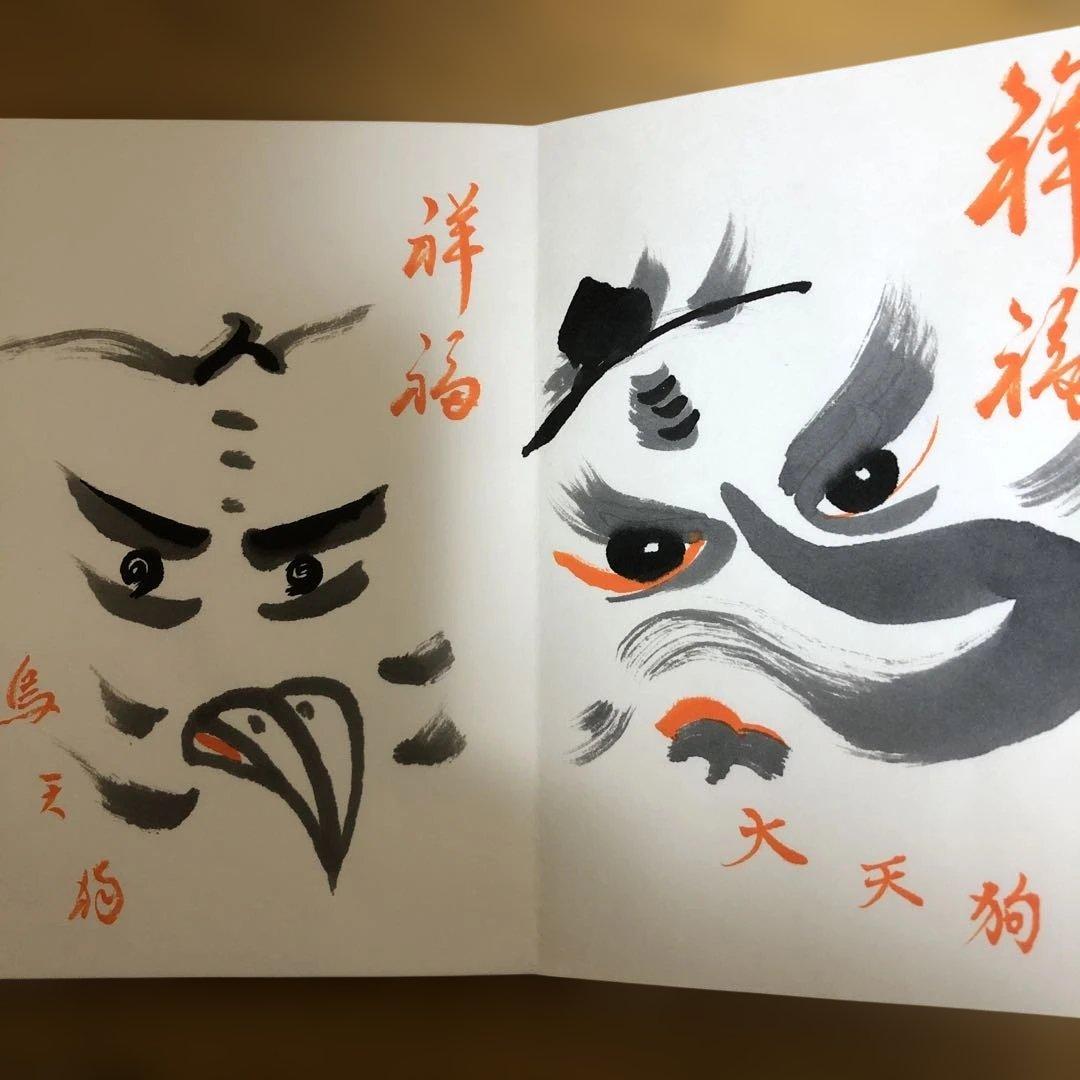 祥福
大天狗
祥福
烏天狗